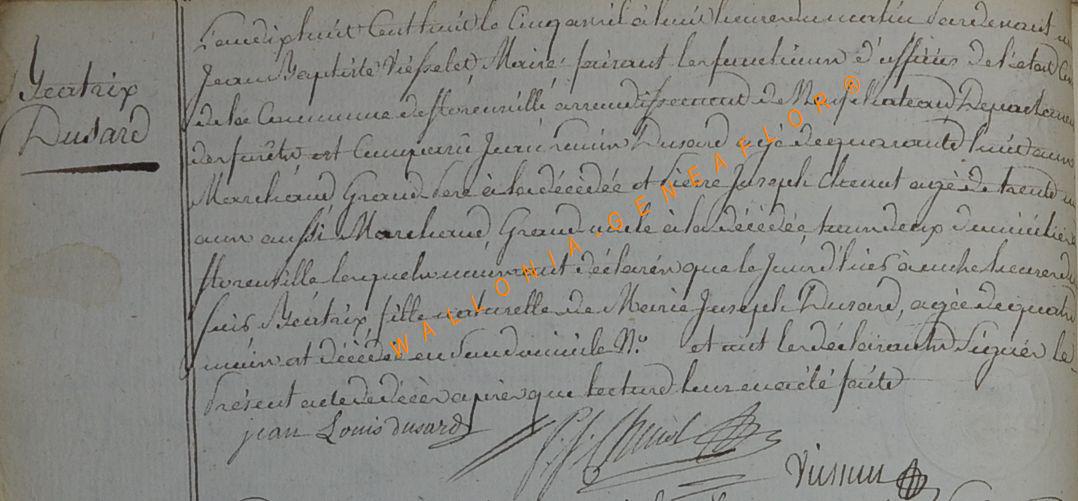 Béatrix
Dusard
L'an dix huit Cent huit le Cinq avril à huit heures du matin pardevant n
Jean Baptiste Maire faisant les fonctions d'officier de l'état Ci
de la Commune de floreuville arrondissement de Neufchateau Département
des forêts est Comparu Jean Dusard agé de quarante huit ans
Marchand Grand Père à la décédée et Pierre Joseph agé de trente
ans aussi Marchand, Grand oncle à la décédée, tous deux domiciliés
floreuville lesquels nous ont déclarés que le Jour d'hier à onze heures du
soir Béatrix fille naturelle de Marie Joseph Dusard, agée de quatre
mois est décédée en Son domicile N.° et ont les déclarants Signés le
Présent acte de décès après que lecture leur en a été faite
jean Louis dusard
WALLONIA-GENEAFLOR®